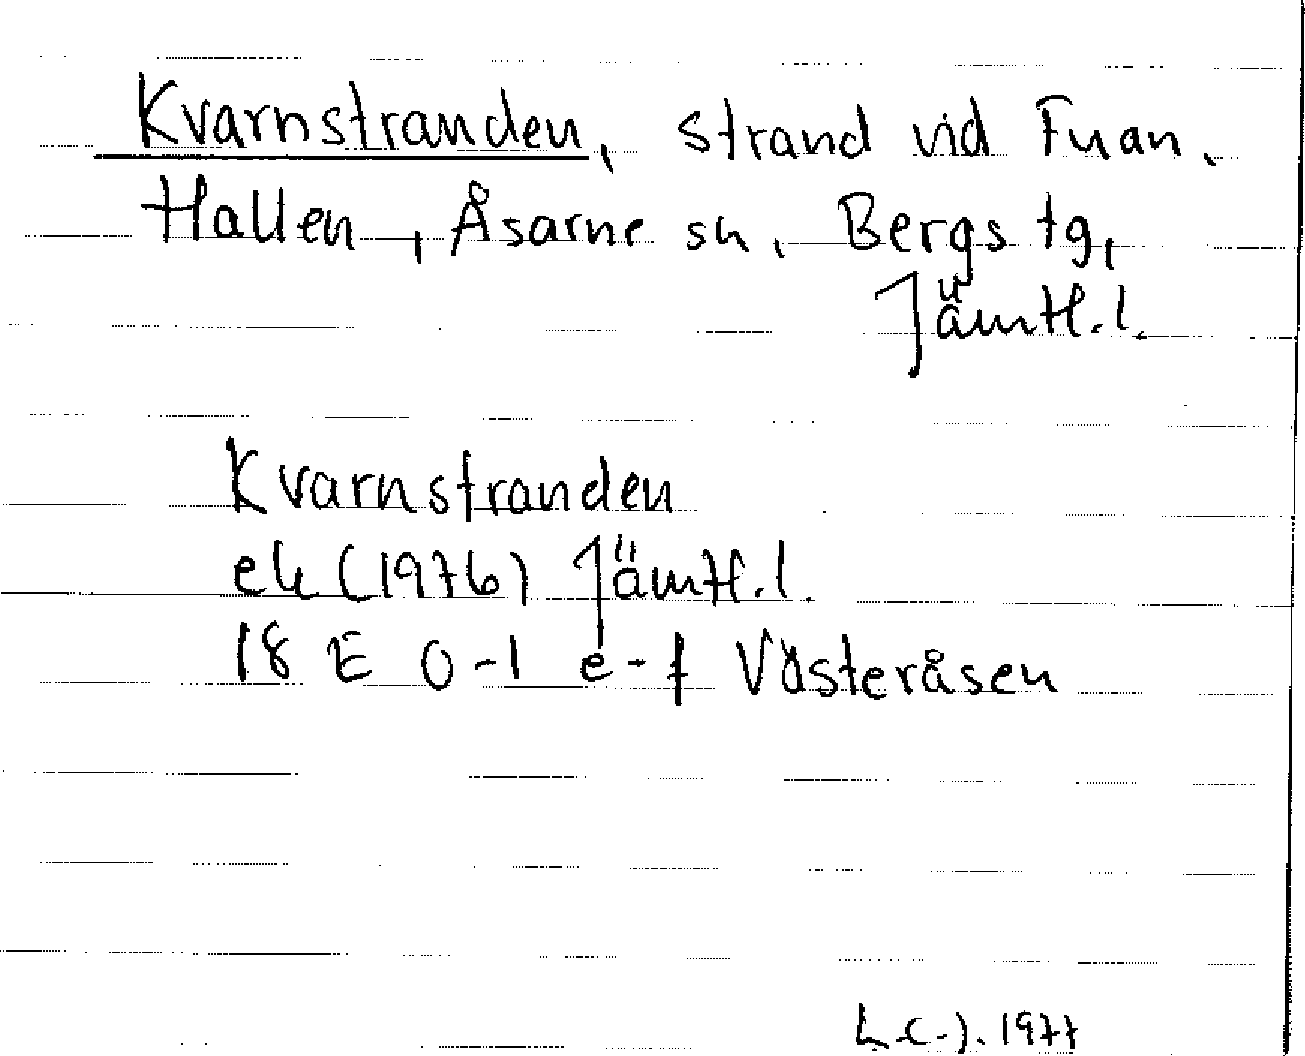 Kvarnstranden, strand vid Fuan,
Hallen, Åsarne sn, Bergs tg,
Jämtl.l.
Kvarnstranden
ek (1976) Jämtl.l.
18 E 0-1 e-f Västeråsen
L.C-J. 1977